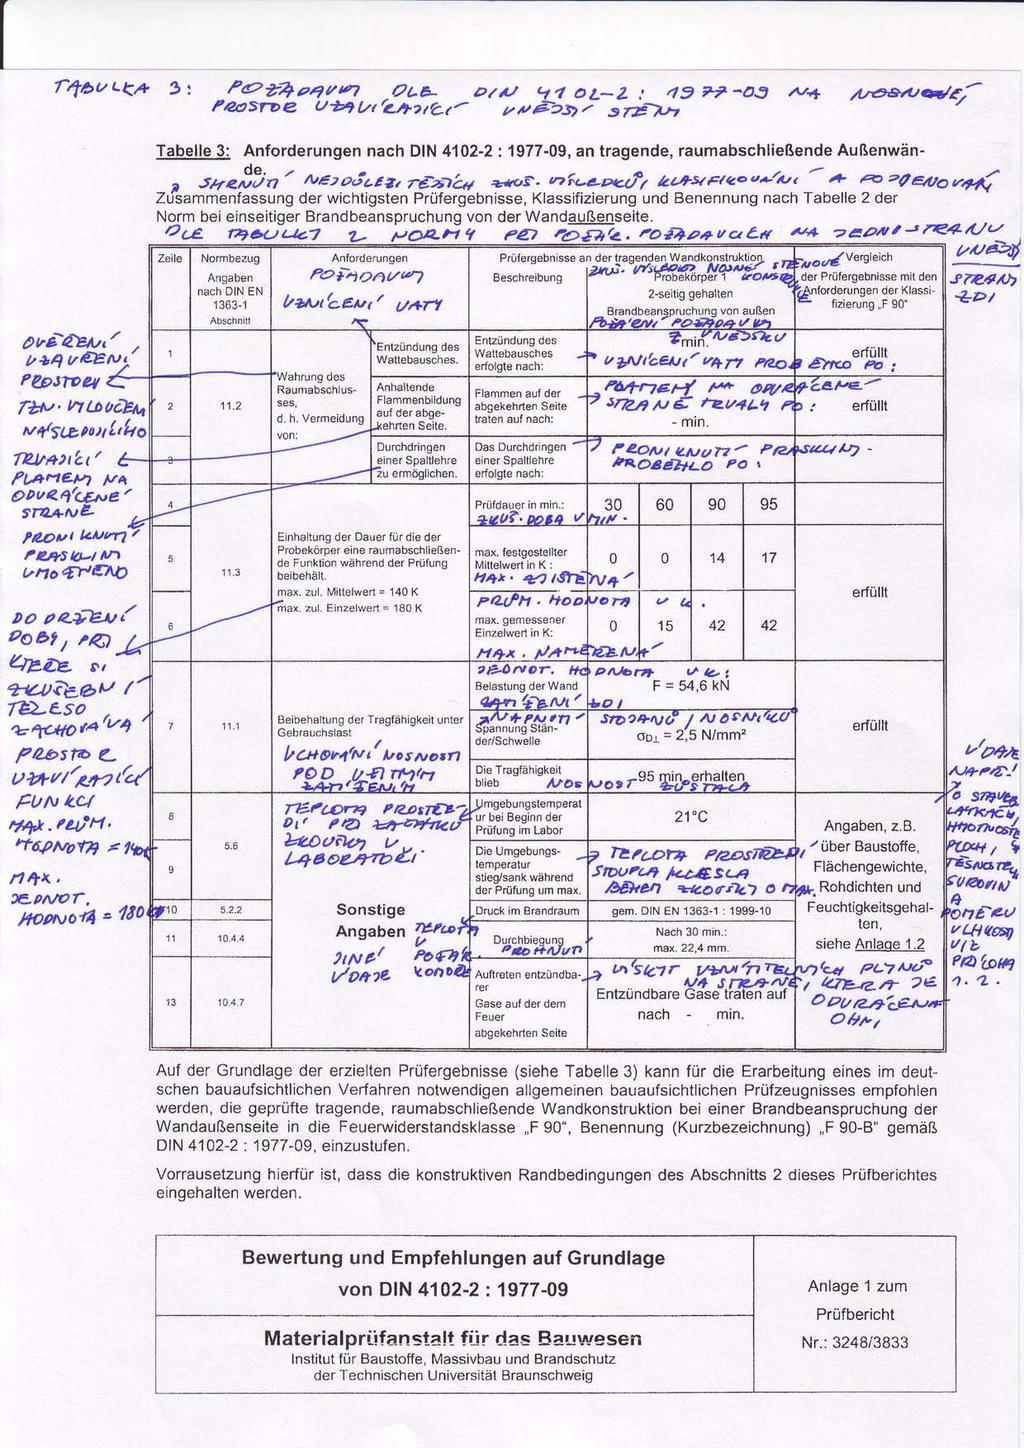 TABULKA 3: POŽADAVKY DLE DIN 4102-2 : 1977-09 NA
PROSTOR UZAVÍRAJÍCÍ VNĚJŠÍ STĚNY
Tabelle 3: Anforderungen nach DIN 4102-2 : 1977-09, an tragende, raumabschließende Außenwän-
de.
Zusammenfassung der wichtigsten Prüfergebnisse, Klassifizierung und Benennung nach Tabelle 2 der
Norm bei einseitiger Brandbeanspruchung von der Wandaußenseite.
DLE TABULKY 2 NORMY PŘI POŽÁR. POŽADAVCÍCH NA JEDNU STRANU
VNĚJŠÍ
STRANY
ZDI
Zeile
Normbezug
Angaben
nach DIN EN
1363-1
Abschnitt
Anforderungen
POŽADAVKY
VZNÍCENÍ VATY
Prüfergebnisse an der tragenden Wandkonstruktion
Beschreibung
Probekörper 1
2-seitig gehalten
Brandbeanspruchung von außen
Vergleich
der Prüfergebnisse mit den
Anforderungen der Klassi-
fizierung „F 90“
OVĚŘENÍ
UZAVŘENÍ
PROSTORU
TZN. VYLOUČENÍ
NÁSLEDUJÍCÍHO
1
Entzündung des
Wattebausches.
Entzündung des
Wattebausches
erfolgte nach:
min.
Z VNĚJŠKU
VZNÍCENÍ VATY PROBĚHLO PO :
erfüllt
2
11.2
Wahrung des
Raumabschlus-
ses,
d. h. Vermeidung
von:
Anhaltende
Flammenbildung
auf der abge-
kehrten Seite.
Flammen auf der
abgekehrten Seite
traten auf nach:
PLAMENY NA ODVRÁCENÉ
STRANĚ TRVALY PO :
- min.
erfüllt
TRVAJÍCÍ
PLAMENY NA
ODVRÁCENÉ
STRANĚ
3
Durchdringen
einer Spaltlehre
zu ermöglichen.
Das Durchdringen
einer Spaltlehre
erfolgte nach:
PRONIKNUTÍ PRASKLINY -
PROBĚHLO PO :
PRONIKNUTÍ
PRASKLIN
UMOŽNĚNO
4
Prüfdauer in min.:
30 60 90 95
ZKUŠ. DOBA V MIN.
5
11.3
Einhaltung der Dauer für die der
Probekörper eine raumabschließen-
de Funktion während der Prüfung
beibehält.
max. zul. Mittelwert = 140 K
max. zul. Einzelwert = 180 K
max. festgestellter
Mittelwert in K :
0 0 14 17
MAX. ZJIŠTĚNÁ
PRŮM. HODNOTA V K.
erfüllt
6
max. gemessener
Einzelwert in K:
0 15 42 42
MAX. NAMĚŘENÁ
JEDNOT. HODNOTA V K:
DODRŽENÍ
DOBY, PŘI
KTERÉ SI
ZKUŠEBNÍ
TĚLESO
ZACHOVÁVÁ
PROSTOR
UZAVÍRAJÍCÍ
FUNKCI
MAX. PRŮM.
HODNOTA = 140K
MAX.
JEDNOT.
HODNOTA = 180K
7
11.1
Beibehaltung der Tragfähigkeit unter
Gebrauchslast
UCHOVÁNÍ NOSNOSTI
POD UŽITNÝM
ZATÍŽENÍM
Belastung der Wand
F = 54,6 kN
ZATÍŽENÍ ZDI
Spannung Stän-
der/Schwelle
STOJANŮ / NOSNÍKŮ
σD⊥ = 2,5 N/mm²
Die Tragfähigkeit
blieb
95 min. erhalten
NOSNOST ZŮSTALA
erfüllt
8
5.6
TEPLOTA PROSTŘE-
DÍ PŘI ZAČÁTKU
ZKOUŠKY V
LABORATOŘI
Umgebungstemperat
ur bei Beginn der
Prüfung im Labor
21°C
9
Die Umgebungs-
temperatur
stieg/sank während
der Prüfung um max.
TEPLOTA PROSTŘEDÍ
STOUPLA / KLESLA
BĚHEM ZKOUŠKY O MAX.
Angaben, z.B.
über Baustoffe,
Flächengewichte,
Rohdichten und
Feuchtigkeitsgehal-
ten,
siehe Anlage 1.2
10
5.2.2
Sonstige
Angaben
JINÉ
ÚDAJE
Druck im Brandraum
gem. DIN EN 1363-1 : 1999-10
11
10.4.4
Durchbiegung
PROHNUTÍ
Nach 30 min.:
max. 22,4 mm.
13
10.4.7
Auftreten entzündba-
rer
Gase auf der dem
Feuer
abgekehrten Seite
VÝSKYT VZNÍTITELNÝCH PLYNŮ
NA STRANĚ, KTERÁ JE
ODVRÁCENA
OHNI
Entzündbare Gase traten auf
nach - min.
ÚDAJE
NAPŘ.
O STAVEB.
LÁTKÁCH,
HMOTNOSTI
PLOCH,
TĚSNOSTI
SUROVIN
A
POMĚRU
VLHKOSTI
VIZ
PŘÍLOHA
1.2.
Auf der Grundlage der erzielten Prüfergebnisse (siehe Tabelle 3) kann für die Erarbeitung eines im deut-
schen bauaufsichtlichen Verfahren notwendigen allgemeinen bauaufsichtlichen Prüfzeugnisses empfohlen
werden, die geprüfte tragende, raumabschließende Wandkonstruktion bei einer Brandbeanspruchung der
Wandaußenseite in die Feuerwiderstandsklasse „F 90“, Benennung (Kurzbezeichnung) „F 90-B“ gemäß
DIN 4102-2 : 1977-09, einzustufen.
Vorrausetzung hierfür ist, dass die konstruktiven Randbedingungen des Abschnitts 2 dieses Prüfberichtes
eingehalten werden.
Bewertung und Empfehlungen auf Grundlage
von DIN 4102-2 : 1977-09
Materialprüfanstalt für das Bauwesen
Institut für Baustoffe, Massivbau und Brandschutz
der Technischen Universität Braunschweig
Anlage 1 zum
Prüfbericht
Nr.: 3248/3833